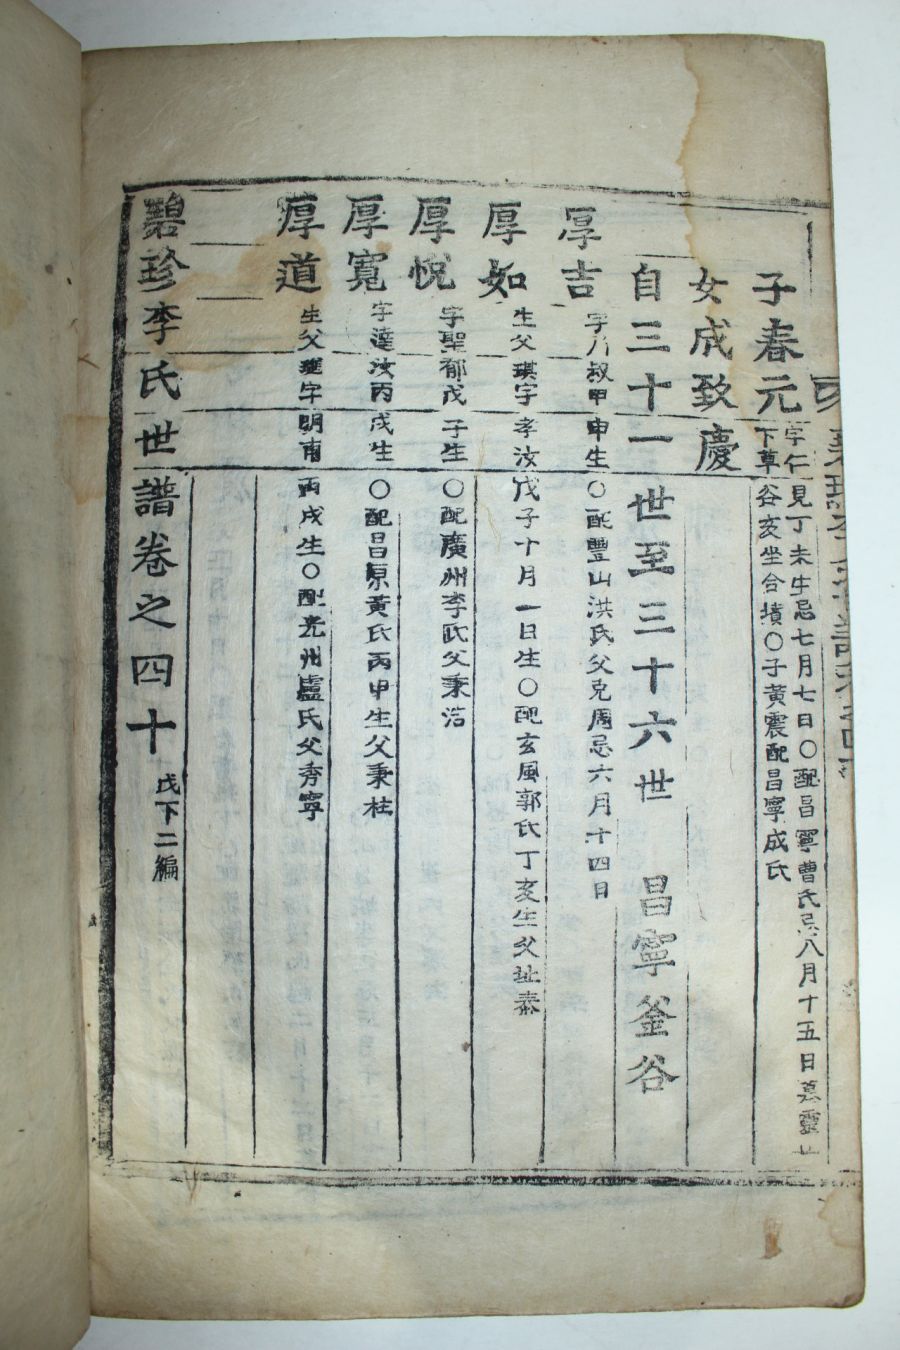 子春元 字仁見丁未生忌七月七日〇配昌寧曺氏忌八月十五日墓靈山
下草谷亥坐合墳〇子黃震配昌寧成氏
女成致慶
自三十一世至三十六世 昌寧釜谷
厚吉 字八叔甲申生〇配豐山洪氏父克周忌六月十四日
厚如 生父琪字孝汝戊子十月一日生〇配玄風郭氏丁亥生父址泰
厚悅 字聖郁戊子生〇配廣州李氏父秉浩
厚寬 字達汝丙戌生〇配昌原黃氏丙申生父秉柱
厚道 生父璡字明甫丙戌生〇配光州盧氏父秀寧
碧珍李氏世譜卷之四十 戊下二編